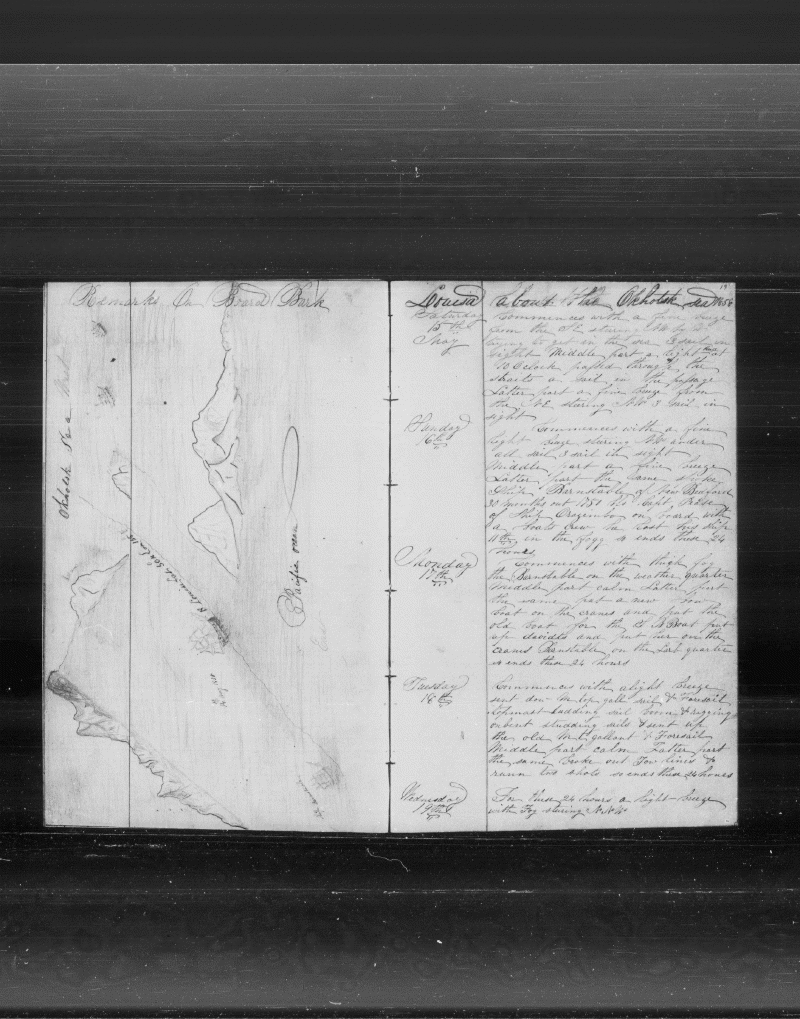 Remarks On Board Bark
Okhotsk Sea
Pacific ocean
19
Louisa about the Okhotsk sea 1858
Saturday
15th
May
Commences with a fine breze
from the stering
trying to get in the sea 3 sail in
sight Middle part a light wind at
10 O'Clock passed through the
straits a sail in the passage
Latter part a fine breze from
the NE stering NW 3 sail in
sight
Sunday
16th
Commences with a fine
light breze stering NW under
all sail 3 sail in sight
Middle part a fine breze
Latter part the same spoke
Ship Barnstable of New Bedford
Capt
of Ship on board with
a boats crew he lost his ship
in the fogg so ends these 24
hours
Monday
17th
Commences with thick fog
the Barnstable on the weather quarter
Middle part calm Latter part
the same put a new bow
boat on the cranes and put the
old boat for the Boat put
up and put her on the
cranes Barnstable on the Larb quarter
so ends these 24 hours
Tuesday
18th
Commences with a light breeze
sent don M top gall sail & Foresail
topmast sudding sail boom & rigging
studding sails & sent up
the old M t gallant & Foresail
Middle part calm Latter part
the same Broke out Tow lines &
so ends these 24 hours
Wednesday
19th
For these 24 hours a light breeze
with Fog stering N N W